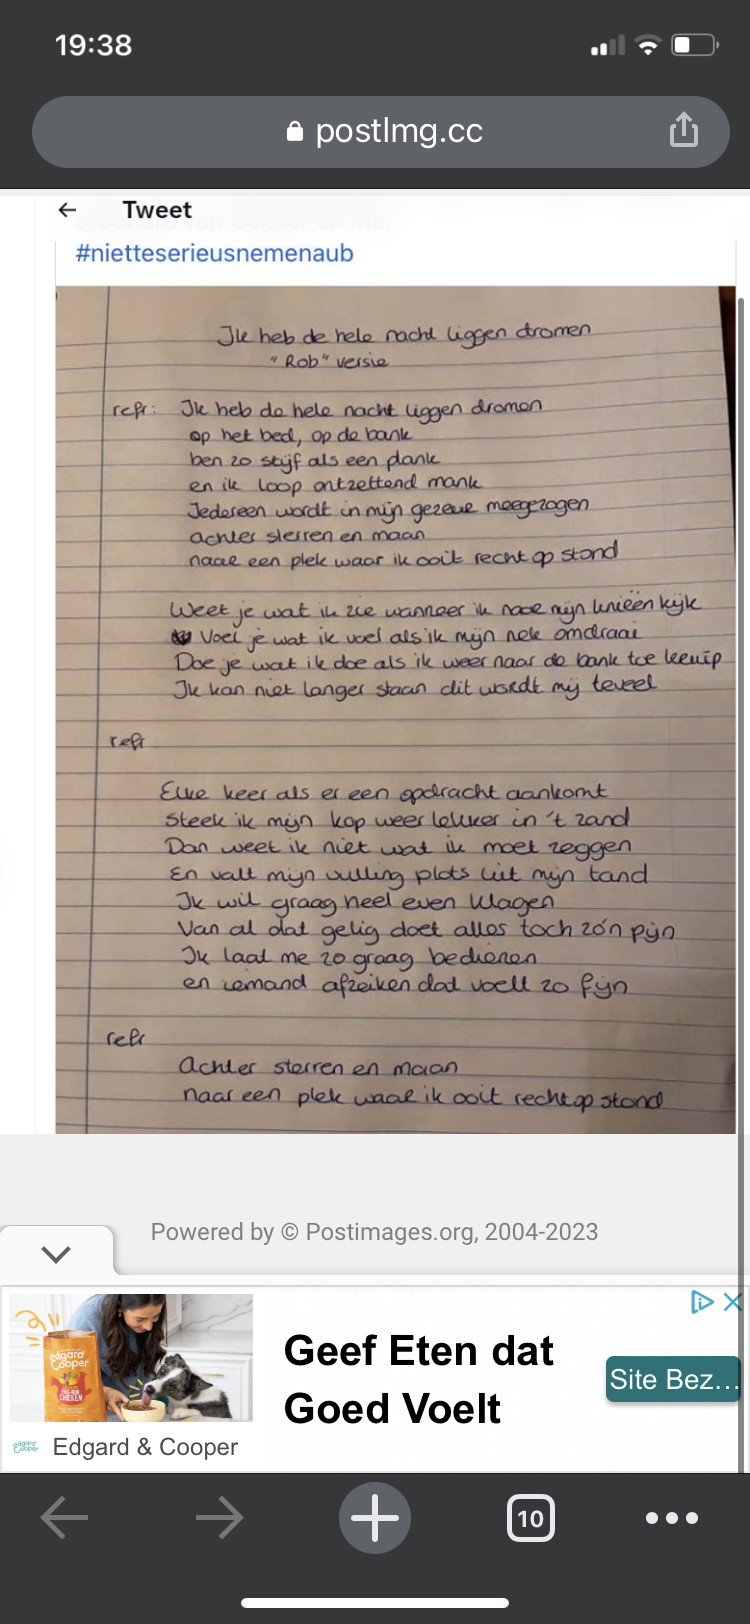 19:38
postImg.cc
Tweet
#nietteserieusnemenaub
Ik heb de hele nacht liggen dromen
"Rob" versie
refr: Ik heb de hele nacht liggen dromen
op het bed, op de bank
ben zo stijf als een plank
en ik loop ontzettend mank
Iedereen wordt in mijn gezeur meegezogen
achter sterren en maan
naar een plek waar ik ooit recht op stond
Weet je wat ik zie wanneer ik naar mijn knieën kijk
Voel je wat ik voel als ik mijn nek omdraai
Doe je wat ik doe als ik weer naar de bank toe kruip
Ik kan niet langer staan dit wordt mij teveel
refr
Elke keer als er een opdracht aankomt
Steek ik mijn kop weer lekker in 't zand
Dan weet ik niet wat ik moet zeggen
En valt mijn vulling plots uit mijn tand
Ik wil graag heel even klagen
Van al dat gelig doet alles toch zo'n pijn
Ik laat me zo graag bedienen
en iemand afzeiken dat voelt zo fijn
refr
Achter sterren en maan
naar een plek waar ik ooit rechtop stond
Powered by © Postimages.org, 2004-2023
edgard
Cooper
CHICKEN
Geef Eten dat
Goed Voelt
Site Bez...
edgard
Cooper
Edgard & Cooper
10